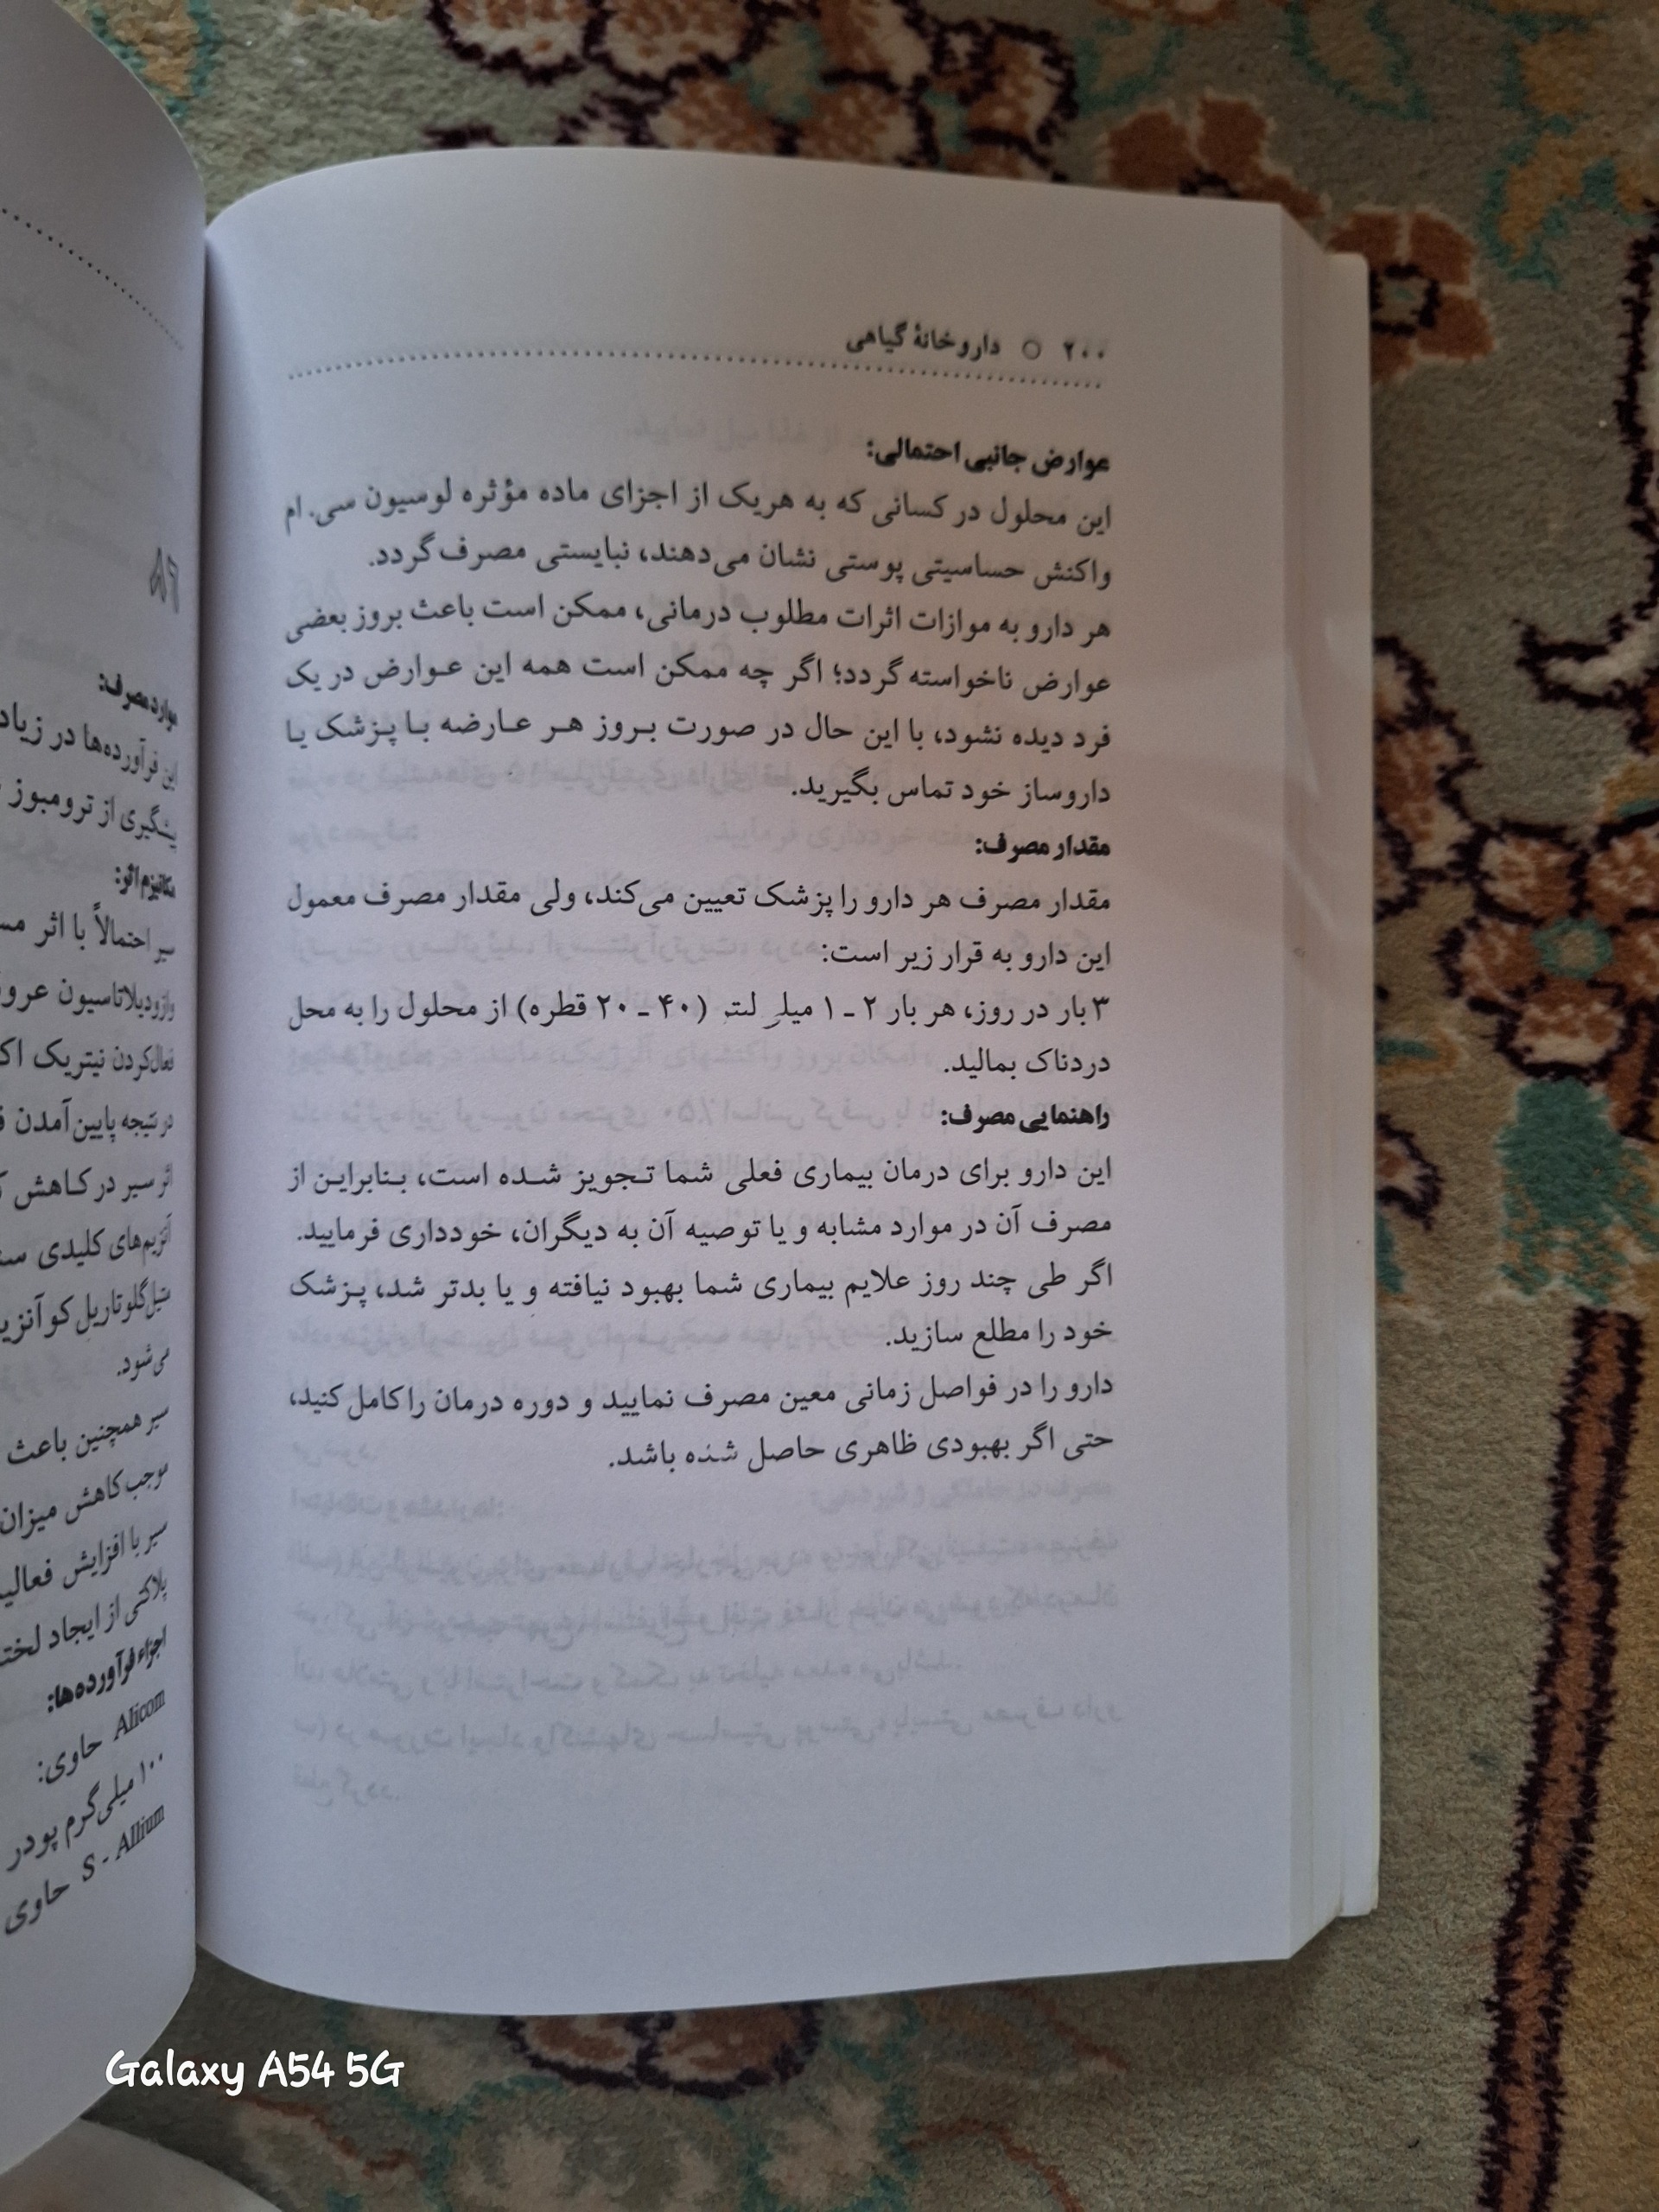 ۲۰۰ ○ داروخانهٔ گیاهی
عوارض جانبی احتمالی:
این محلول در کسانی که به هریک از اجزای ماده مؤثره لوسیون سی. ام
واکنش حساسیتی پوستی نشان می‌دهند، نبایستی مصرف گردد.
هر دارو به موازات اثرات مطلوب درمانی، ممکن است باعث بروز بعضی
عوارض ناخواسته گردد؛ اگر چه ممکن است همه این عوارض در یک
فرد دیده نشود، با این حال در صورت بروز هر عارضه با پزشک یا
داروساز خود تماس بگیرید.
مقدار مصرف:
مقدار مصرف هر دارو را پزشک تعیین می‌کند، ولی مقدار مصرف معمول
این دارو به قرار زیر است:
۳ بار در روز، هر بار ۲ ـ ۱ میلی لیتر (۴۰ ـ ۲۰ قطره) از محلول را به محل
دردناک بمالید.
راهنمایی مصرف:
این دارو برای درمان بیماری فعلی شما تجویز شده است، بنابراین از
مصرف آن در موارد مشابه و یا توصیه آن به دیگران، خودداری فرمایید.
اگر طی چند روز علایم بیماری شما بهبود نیافته و یا بدتر شد، پزشک
خود را مطلع سازید.
دارو را در فواصل زمانی معین مصرف نمایید و دوره درمان را کامل کنید،
حتی اگر بهبودی ظاهری حاصل شده باشد.
موارد مصرف:
این فرآورده‌ها در زیاد
پیشگیری از ترومبوز
مکانیزم اثر:
سیر احتمالاً با اثر
وازودیلاتاسیون
فعال کردن نیتریک
در نتیجه پایین آمدن
اثر سیر در کاهش
آنزیم‌های کلیدی
متیل گلوتاریل کوآنزیم
می‌شود.
سیر همچنین باعث
موجب کاهش میزان
سیر با افزایش
پلاکتی از ایجاد
اجزاء فرآورده‌ها:
Alicom حاوی:
۱۰۰ میلی‌گرم پودر
S - Allium حاوی
Galaxy A54 5G